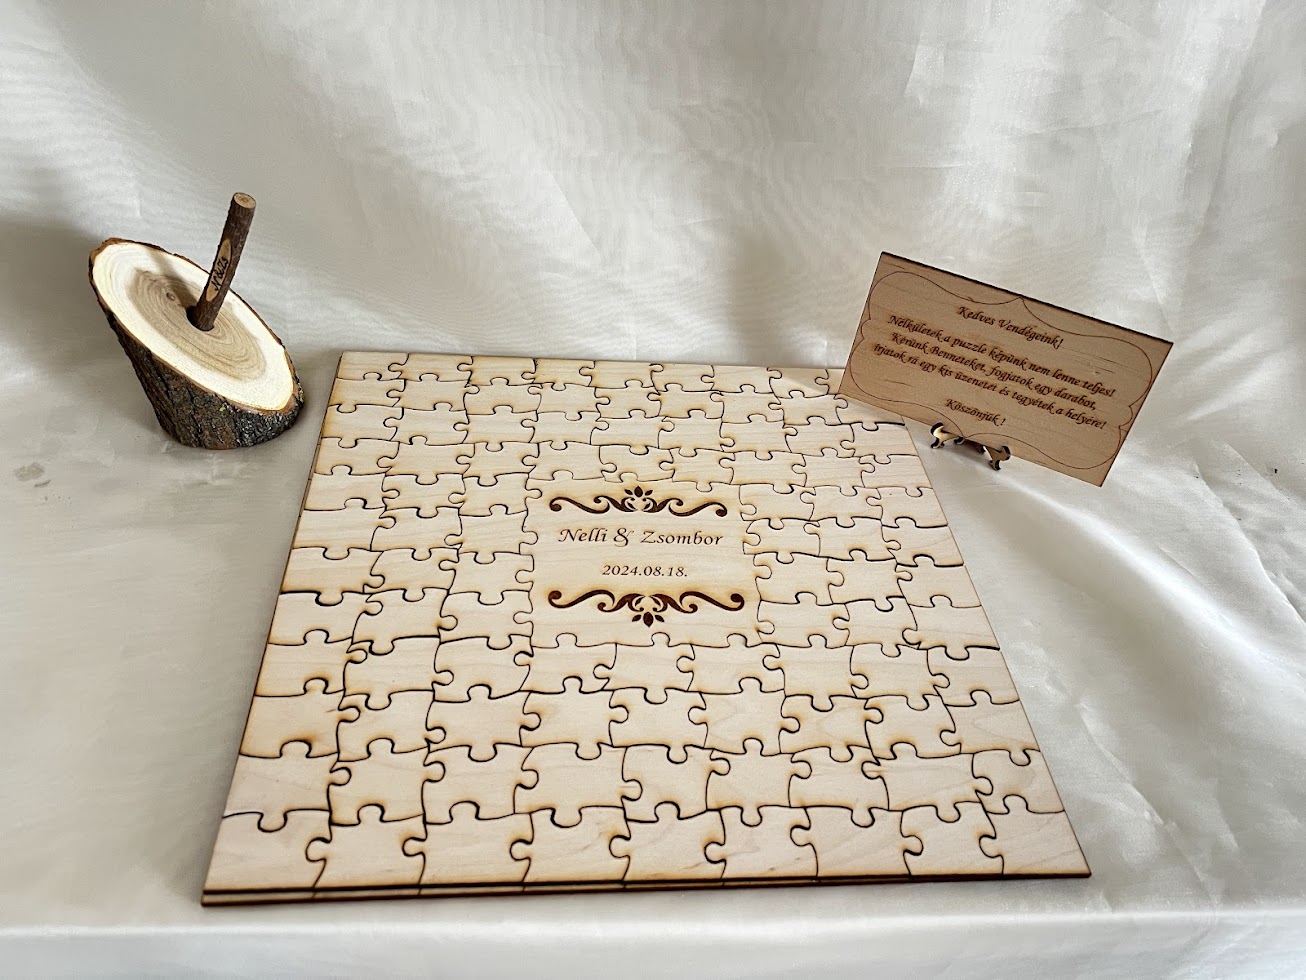 Nelli & Zsombor
2024.08.18.
Kedves Vendégeink!
Nélkületek a puzzle képünk nem lenne teljes!
Kérünk Benneteket, fogjatok egy darabot,
írjatok rá egy kis üzenetet és tegyétek a helyére!
Köszönjük!